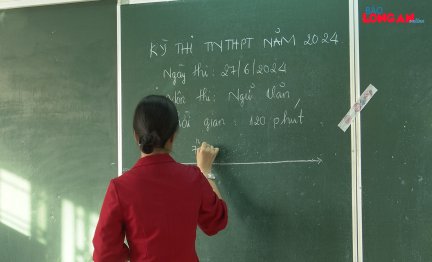 BÁO
LONG AN online
KỲ THI TNTHPT NĂM 2024
Ngày thi: 27/6/2024
thi: Ngữ Văn
gian: 120 phút